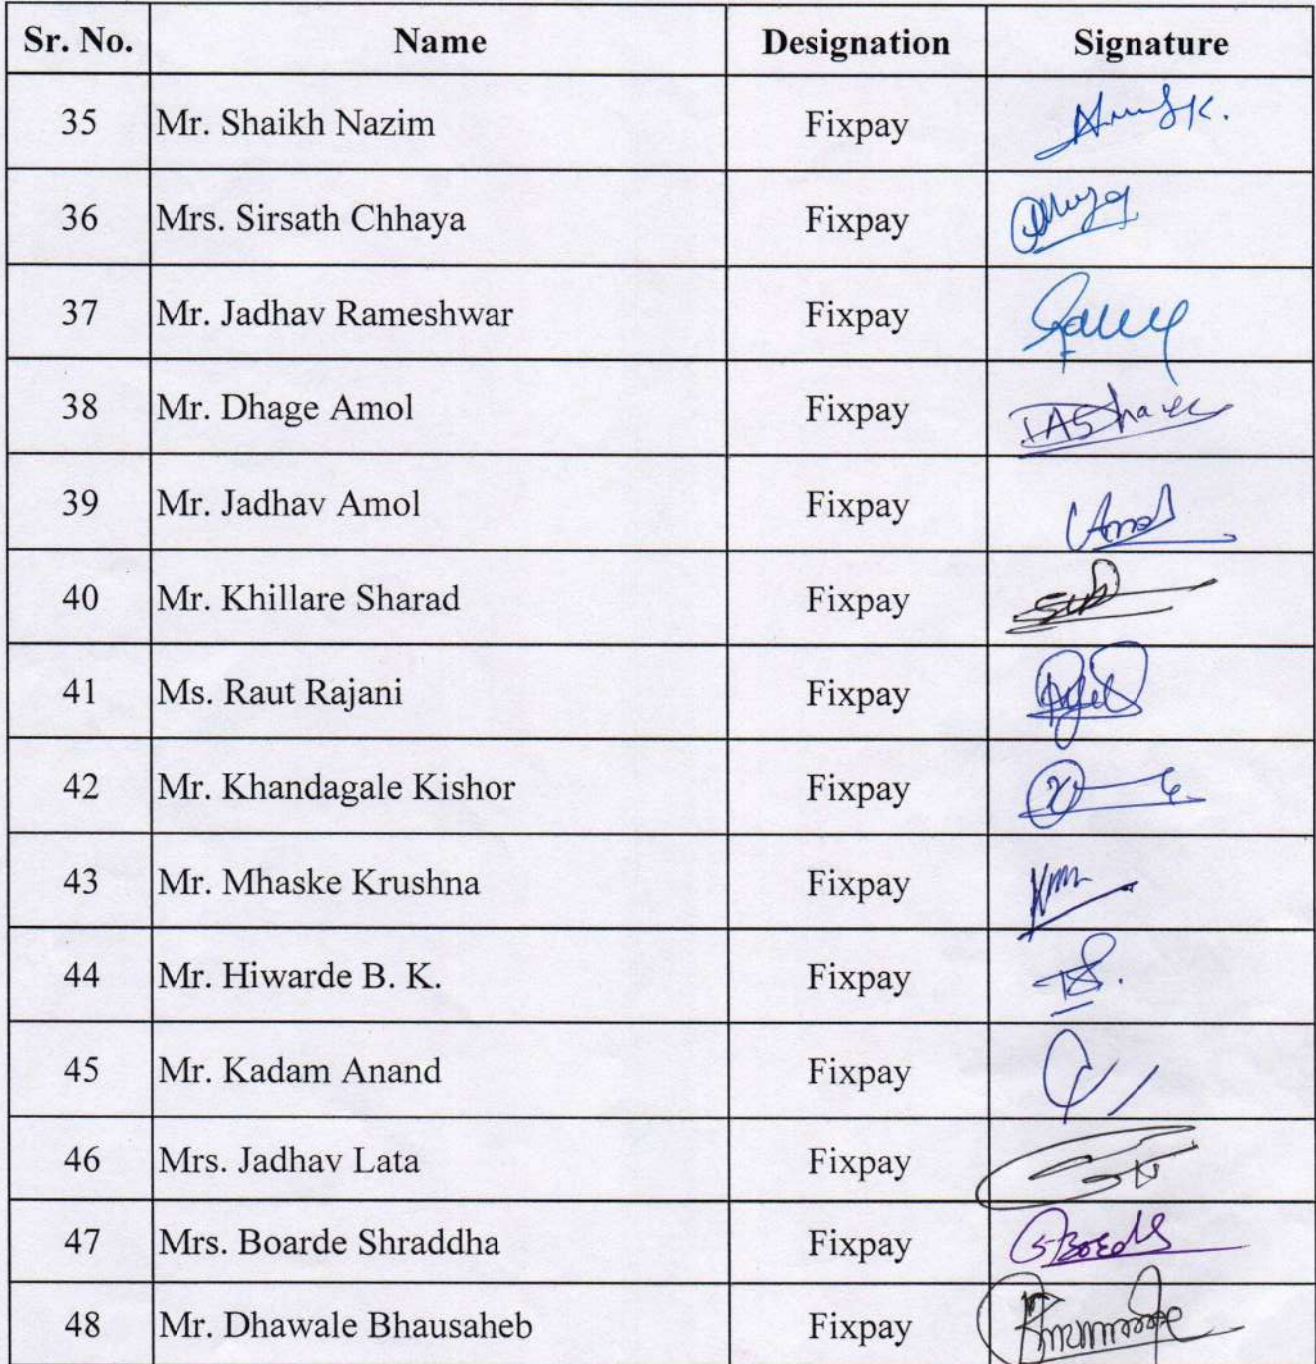 Sr. No. Name Designation Signature
35 Mr. Shaikh Nazim Fixpay
36 Mrs. Sirsath Chhaya Fixpay
37 Mr. Jadhav Rameshwar Fixpay
38 Mr. Dhage Amol Fixpay
39 Mr. Jadhav Amol Fixpay
40 Mr. Khillare Sharad Fixpay
41 Ms. Raut Rajani Fixpay
42 Mr. Khandagale Kishor Fixpay
43 Mr. Mhaske Krushna Fixpay
44 Mr. Hiwarde B. K. Fixpay
45 Mr. Kadam Anand Fixpay
46 Mrs. Jadhav Lata Fixpay
47 Mrs. Boarde Shraddha Fixpay
48 Mr. Dhawale Bhausaheb Fixpay